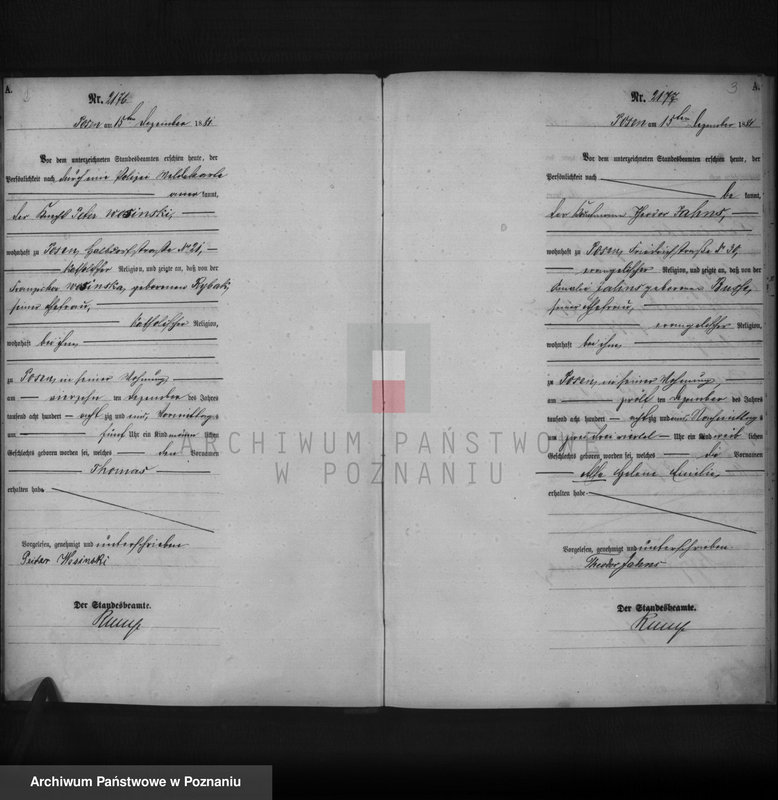 A.
Nr. 2176
Posen am 15ten Dezember 1881
Vor dem unterzeichneten Standesbeamten erschien heute, der
Persönlichkeit nach durch eine Polizei Meldekarte
anerkannt,
der Knecht Peter Wosinski,
wohnhaft zu Posen, Halbdorfstraße No 21,
katholischer Religion, und zeigte an, daß von der
Franziska Wosinska, geborenen Rybak,
seiner Ehefrau,
katholischer Religion,
wohnhaft bei ihm
zu Posen, in seiner Wohnung,
am vierzehn ten Dezember des Jahres
tausend acht hundert achtzig und eins, Vormittags
um fünf Uhr ein Kind männlichen
Geschlechts geboren worden sei, welches den Vornamen
Thomas
erhalten habe.
Vorgelesen, genehmigt und unterschrieben
Wosinski
Der Standesbeamte.
3
A.
Nr. 2177
Posen am 15ten Dezember 1881
Vor dem unterzeichneten Standesbeamten erschien heute, der
Persönlichkeit nach
bekannt,
der Kaufmann Theodor Jahns,
wohnhaft zu Posen, Friedrichstraße No 30,
evangelischer Religion, und zeigte an, daß von der
Amalie Jahns geborenen Busse,
seiner Ehefrau,
evangelischer Religion,
wohnhaft bei ihm
zu Posen, in seiner Wohnung,
am zwölf ten Dezember des Jahres
tausend acht hundert achtzig und eins, Nachmittags
um zwei drei viertel Uhr ein Kind weiblichen
Geschlechts geboren worden sei, welches die Vornamen
Helene Emilie,
erhalten habe
Vorgelesen, genehmigt und unterschrieben
Theodor Jahns
Der Standesbeamte.
ARCHIWUM PAŃSTWOWE
W POZNANIU
Archiwum Państwowe w Poznaniu